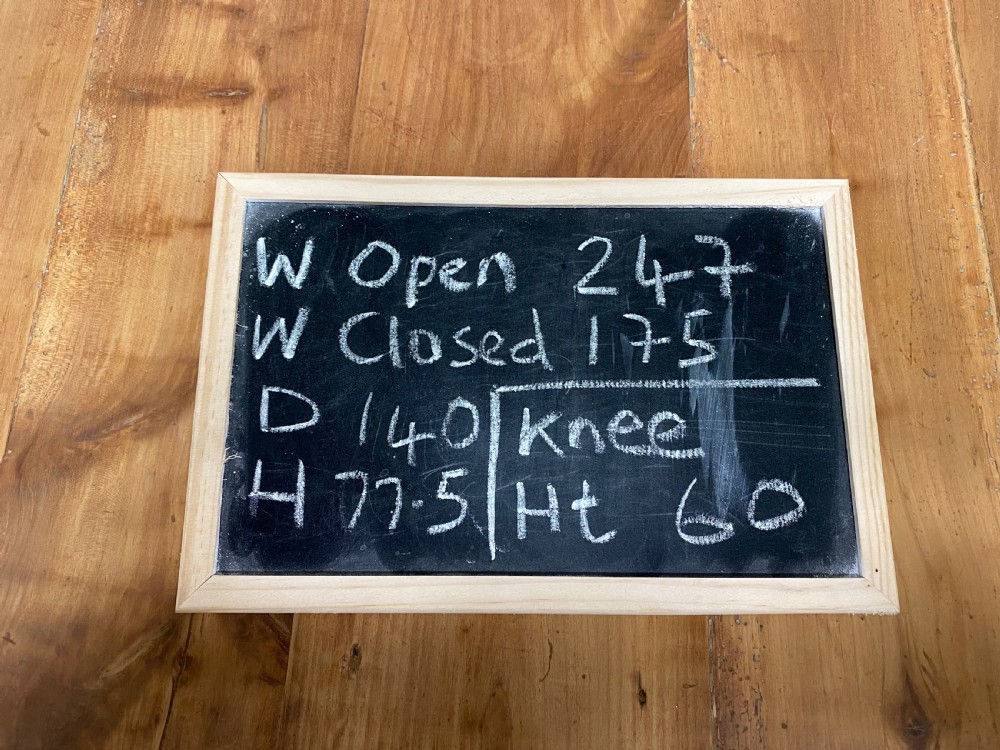 W Open 247
W Closed 175
D 140
H 77.5
Knee
Ht 60